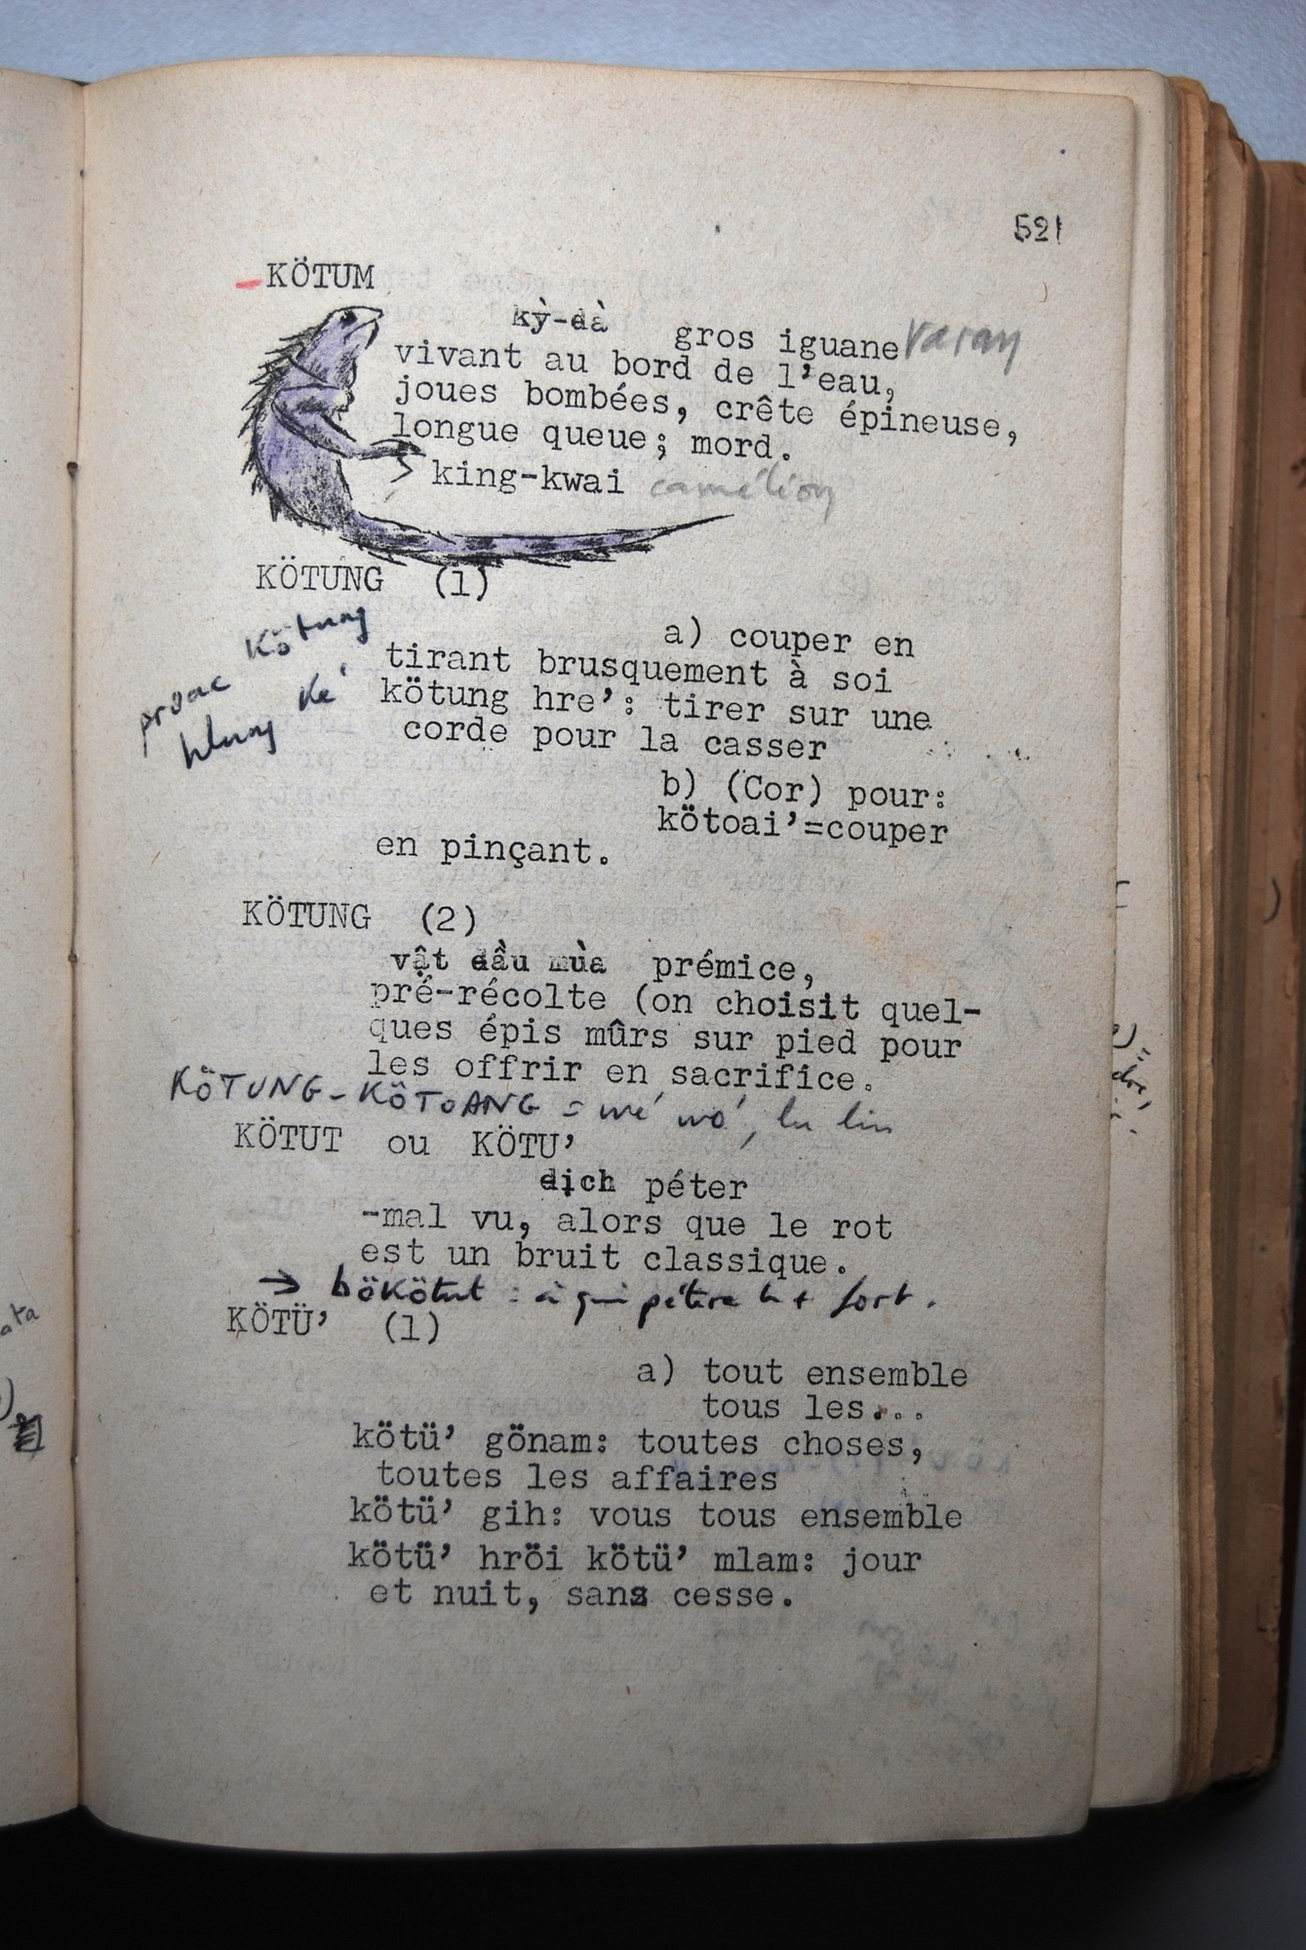 521
KÖTUM
kỳ-đà gros iguane varan
vivant au bord de l’eau,
joues bombées, crête épineuse,
longue queue; mord.
king-kwai caméléon
KÖTUNG (1)
Kötung
a) couper en
tirant brusquement à soi
proac
kötung hre’: tirer sur une
corde pour la casser
b) (Cor) pour:
kötoai’=couper
en pinçant.
KÖTUNG (2)
vật đầu mùa prémice,
pré-récolte (on choisit quel-
ques épis mûrs sur pied pour
les offrir en sacrifice.
KÖTUNG - KÖTOANG =
KÖTUT ou KÖTU’
địch péter
-mal vu, alors que le rot
est un bruit classique.
→ bökötut : à qui pétera le + fort.
KÖTÜ’ (1)
a) tout ensemble
tous les...
kötü’ gönam: toutes choses,
toutes les affaires
kötü’ gih: vous tous ensemble
kötü’ hröi kötü’ mlam: jour
et nuit, sans cesse.